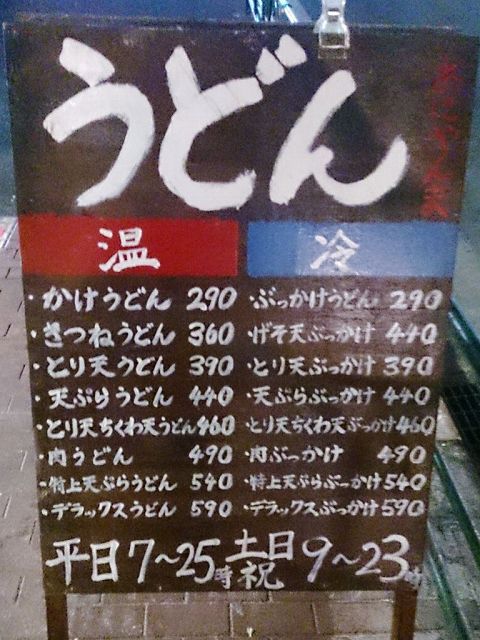 うどん
温
・かけうどん 290
・きつねうどん 360
・とり天うどん 390
・天ぷらうどん 440
・とり天ちくわ天うどん 460
・肉うどん 490
・特上天ぷらうどん 540
・デラックスうどん 590
冷
・ぶっかけうどん 290
・げそ天ぶっかけ 440
・とり天ぶっかけ 390
・天ぷらぶっかけ 440
・とり天ちくわ天ぶっかけ 460
・肉ぶっかけ 490
・特上天ぷらぶっかけ 540
・デラックスぶっかけ 590
平日7〜25時 土日祝 9〜23時